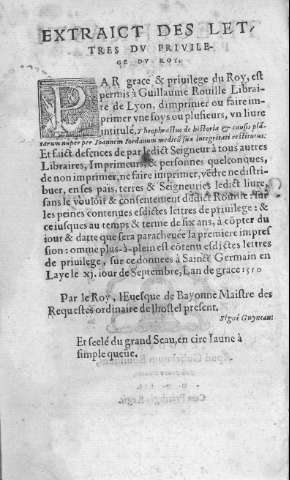 EXTRAICT DES LET,
TRES DV PRIVILE-
GE DV ROY.
PAR grace & priuilege du Roy, est
permis à Guillaume Rouille Librai
re de Lyon, d'imprimer ou faire im-
primer vne soys ou plusieurs, vn liure
intitulé, Theophrastus de historia & causis plã
tarum nuper per Ioannem Iordanum medicũ suæ integritati restitutus.
Et faict defences de par ledict Seigneur à tous autres
Libraires, Imprimeurs & personnes quelconques,
de non imprimer, ne faire imprimer, vẽdre ne distri-
buer, en ses pais, terres & Seigneuries ledict liure,
sans le vouloir & consentement dudict Rouille sur
les peines contenues esdictes lettres de priuilege: &
ce iusques au temps & terme de six ans, à cõpter du
iour & datte que sera paracheuee la premiere impres
sion: omme plus-à-plein est cõtenu esdictes lettres
de priuilege, sur ce donnees à Sainct Germain en
Laye le xj. iour de Septembre, Lan de grace: 1550
Par le Roy, lEuesque de Bayonne Maistre des
Requestes ordinaire de lhostel present.
Signé Guyneant
Et seelé du grand Seau, en cire Iaune à
simple queue.